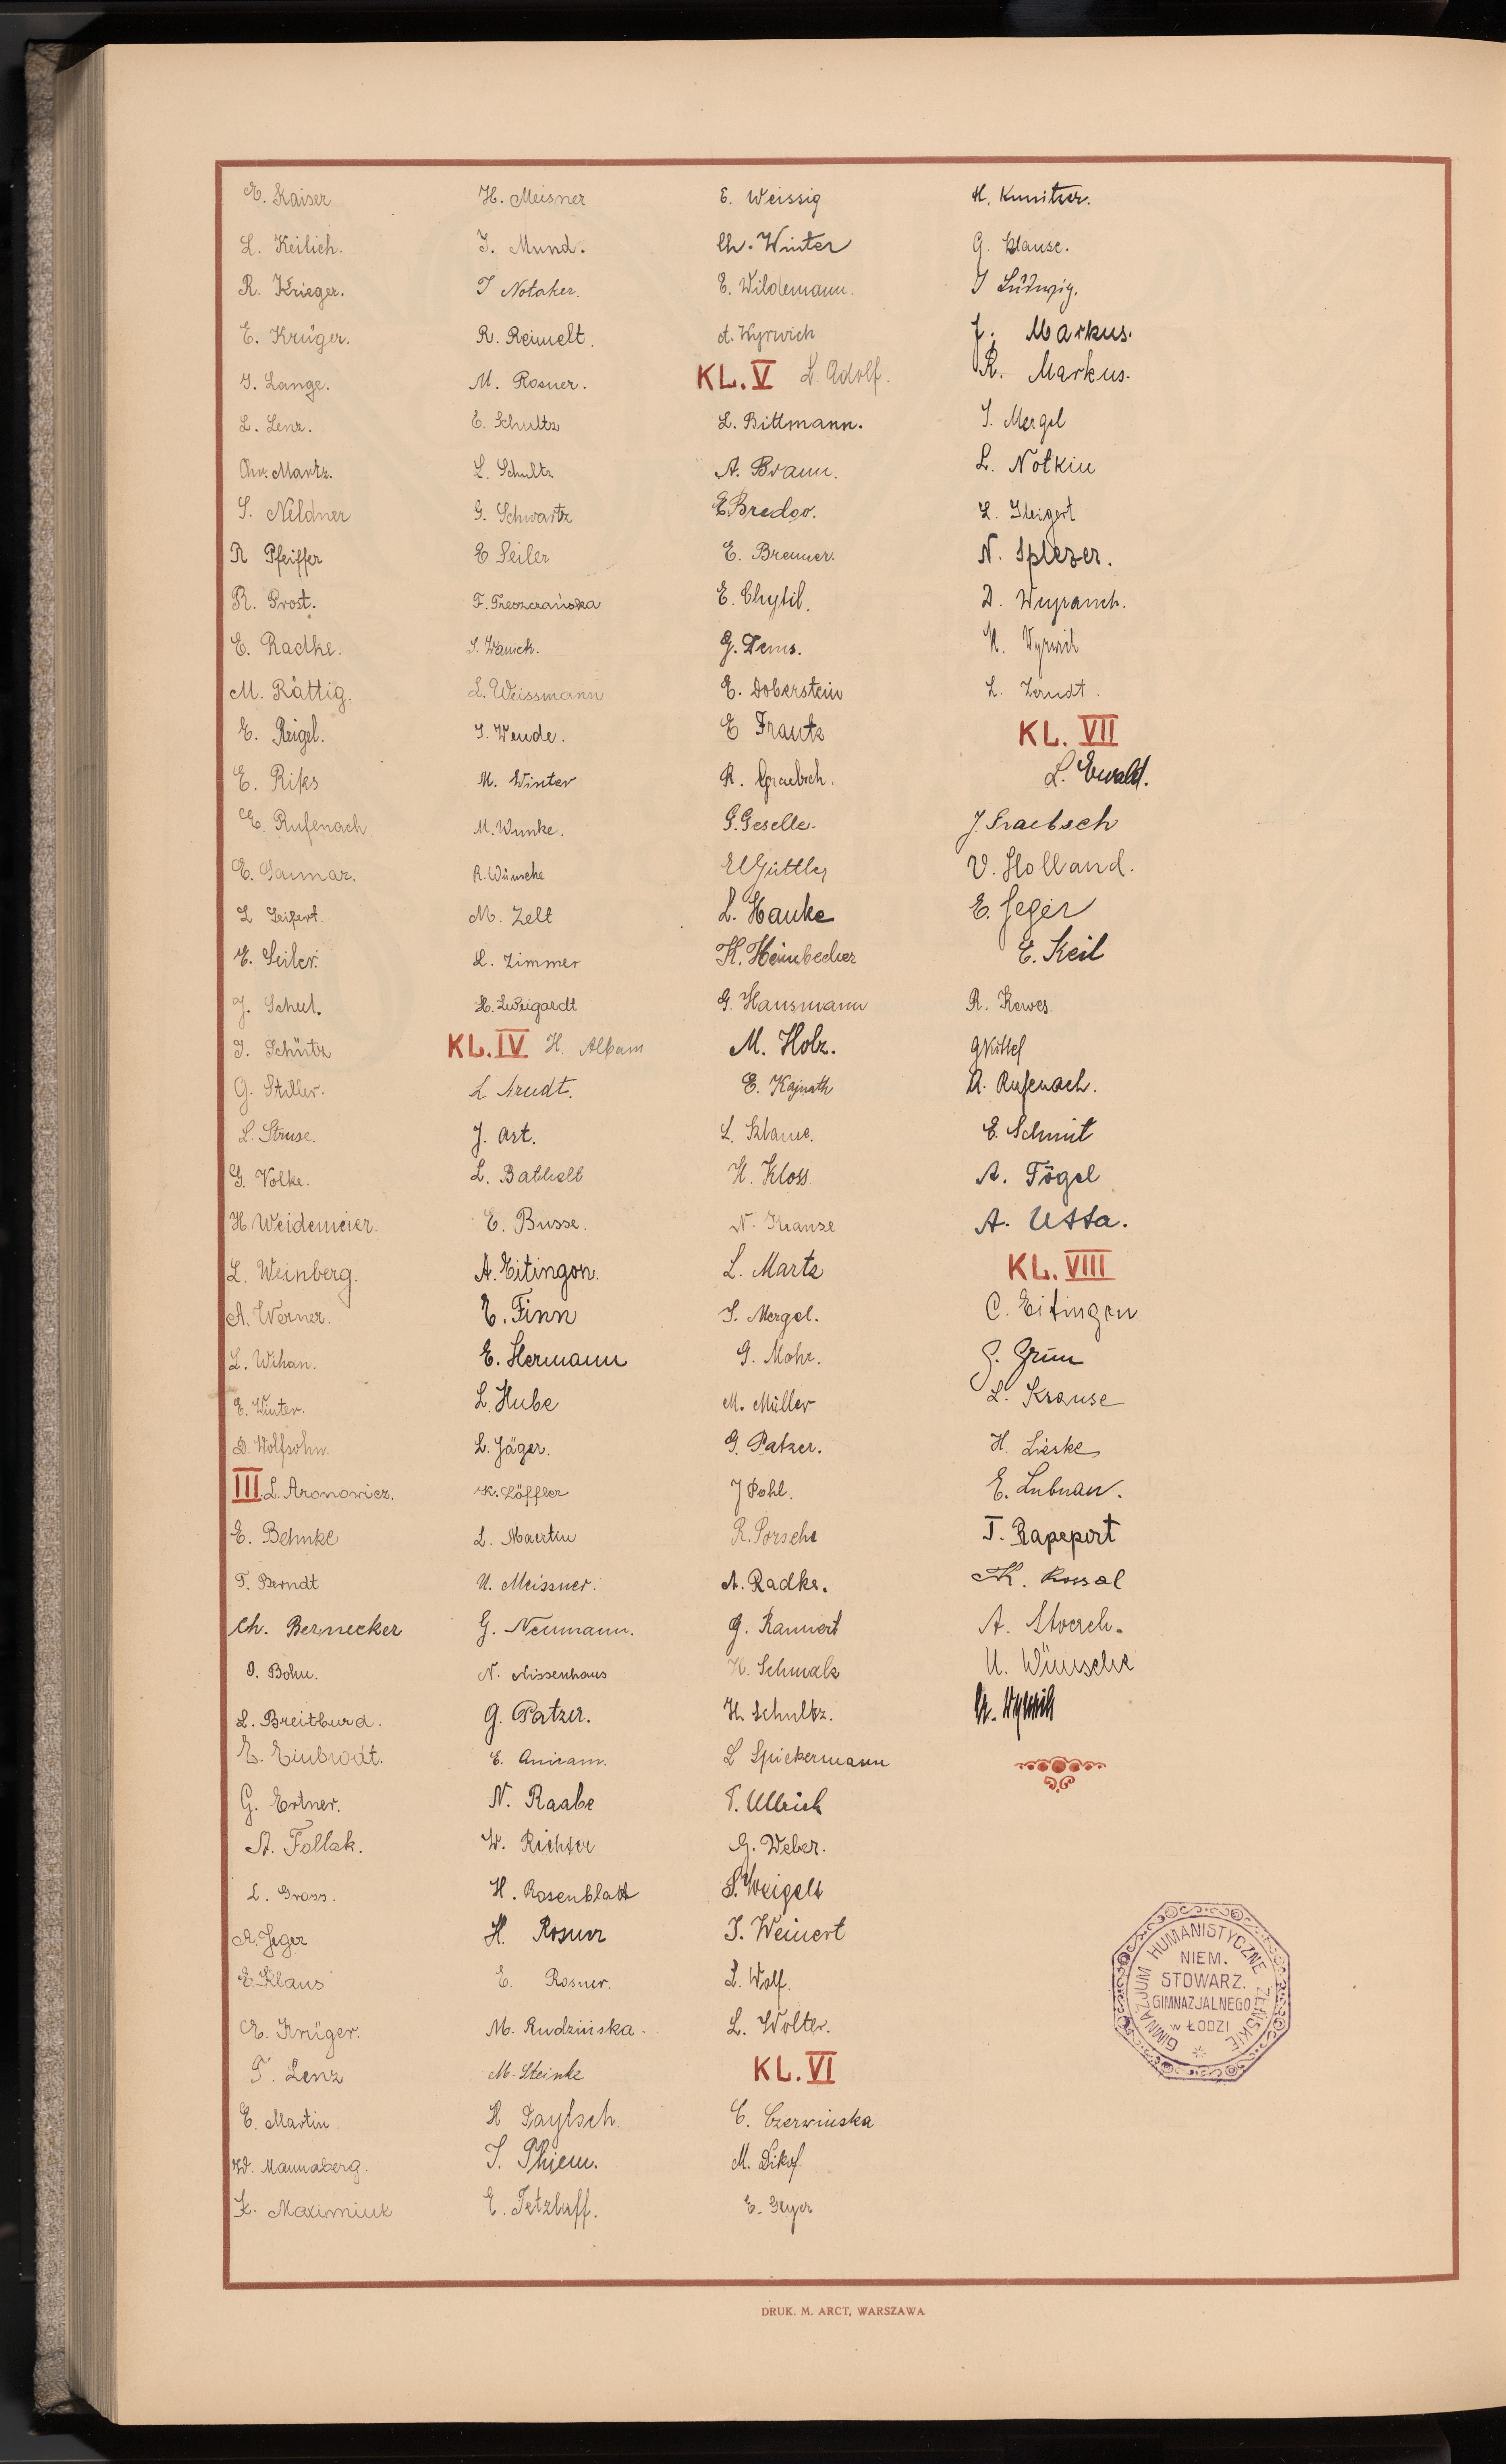 E. Kaiser
L. Keilich.
R. Krieger.
E. Krüger.
I. Lange.
L. Lenz.
Chr. Martz.
S. Nildner
R Pfeiffer
R. Prost.
E. Radke.
M. Rättig.
E. Reigel.
E. Riks
E. Rufenach
E. Saumar.
L Seifert.
E. Seiler.
J. Schul.
I. Schütz
G. Stiller.
L. Struse.
G. Volke.
H. Weidemeier.
L. Weinberg.
A. Werner.
L. Wihan.
E. Winter.
D. Wolfsohn.
III. L. Aronowicz.
E. Behnke
T. Berndt
Ch. Bernecker
I. Bohm.
L. Breitburd.
E. Einbrodt.
G. Ertner.
A. Follak.
L. Gross.
A. Jeger
E. Klaus
E. Krüger.
T. Lenz
E. Martin.
W. Mannaberg.
K. Maximiuk
H. Meisner
I. Mund.
I Notaker.
R. Reimelt.
M. Rosner.
E. Schultz
L. Schultz
G. Schwartz
E Seiler
F. Treszczańska
I. Wanick.
L. Weissmann
I. Wende.
M. Winter
M. Wunke.
R. Wünsche
M. Zelt
L. Zimmer
H. Lweigardt
KL. IV H. Albam
L Arndt.
J. Art.
L. Bathelt
E. Busse.
A. Eitingon.
E. Finn
E. Hermann
L. Hube
L. Jäger.
K. Löffler
L. Maertin
U. Meissner.
G. Neumann.
N. Nissenhaus
G. Patzer.
E. Aniram.
N. Raabe
W. Richter
H. Rosenblatt
H. Rosner
E. Rosner.
M. Rudzińska.
M. Steinke
H Taylsch.
I. Thiem.
E. Tetzlaff.
E. Weissig
Ch. Winter
E. Wildemann.
A. Wyrwich
KL. V L. Adolf.
L. Bittmann.
A. Braun.
E Bredov.
E. Brenner.
E. Chytil.
G. Dems.
E. Doberstein
E Frantz
R. Graebsch.
G. Geselle.
E Güttler
L. Hauke
K. Heimbecher
G. Hausmann
M. Holz.
E. Kajnath
L. Klame.
H. Kloss
N. Krause
L. Martz
I. Mergel.
G. Mohr.
M. Müller
G. Patzer.
J Pohl.
R. Porsche
A. Radke.
G. Rannert
H. Schmalz
H. Schultz.
L Spickermann
T. Ullrich
G. Weber.
S. Weigelt
I. Weinert
L. Wolf.
L. Wolter.
KL. VI
C. Czerwinska
M. Dikof.
E. Geyer
H. Kunitzer.
G. Klause.
I Ludwig.
J. Markus.
R. Markus.
I. Mergel
L. Notkin
L. Steigert
N. Splezer.
D. Weyrauch.
H. Vyrwich
L. Zerndt.
KL. VII
L. Ewald.
J. Graebsch
V. Holland.
E. Jeger
E. Keil
R. Kewes
G Kittel
A. Rufenach.
E. Schmit
A. Tögel
A. Utta.
KL. VIII
C. Eitingon
G. Grün
L. Krause
H. Lieske
E. Lubnau.
T. Rapeport
K. Rossal
A. Stoersch.
U. Wünsche
H. Wyrwich
GIMNAZJUM HUMANISTYCZNE ŻEŃSKIE
NIEM.
STOWARZ.
GIMNAZJALNEGO
w ŁODZI
DRUK. M. ARCT, WARSZAWA